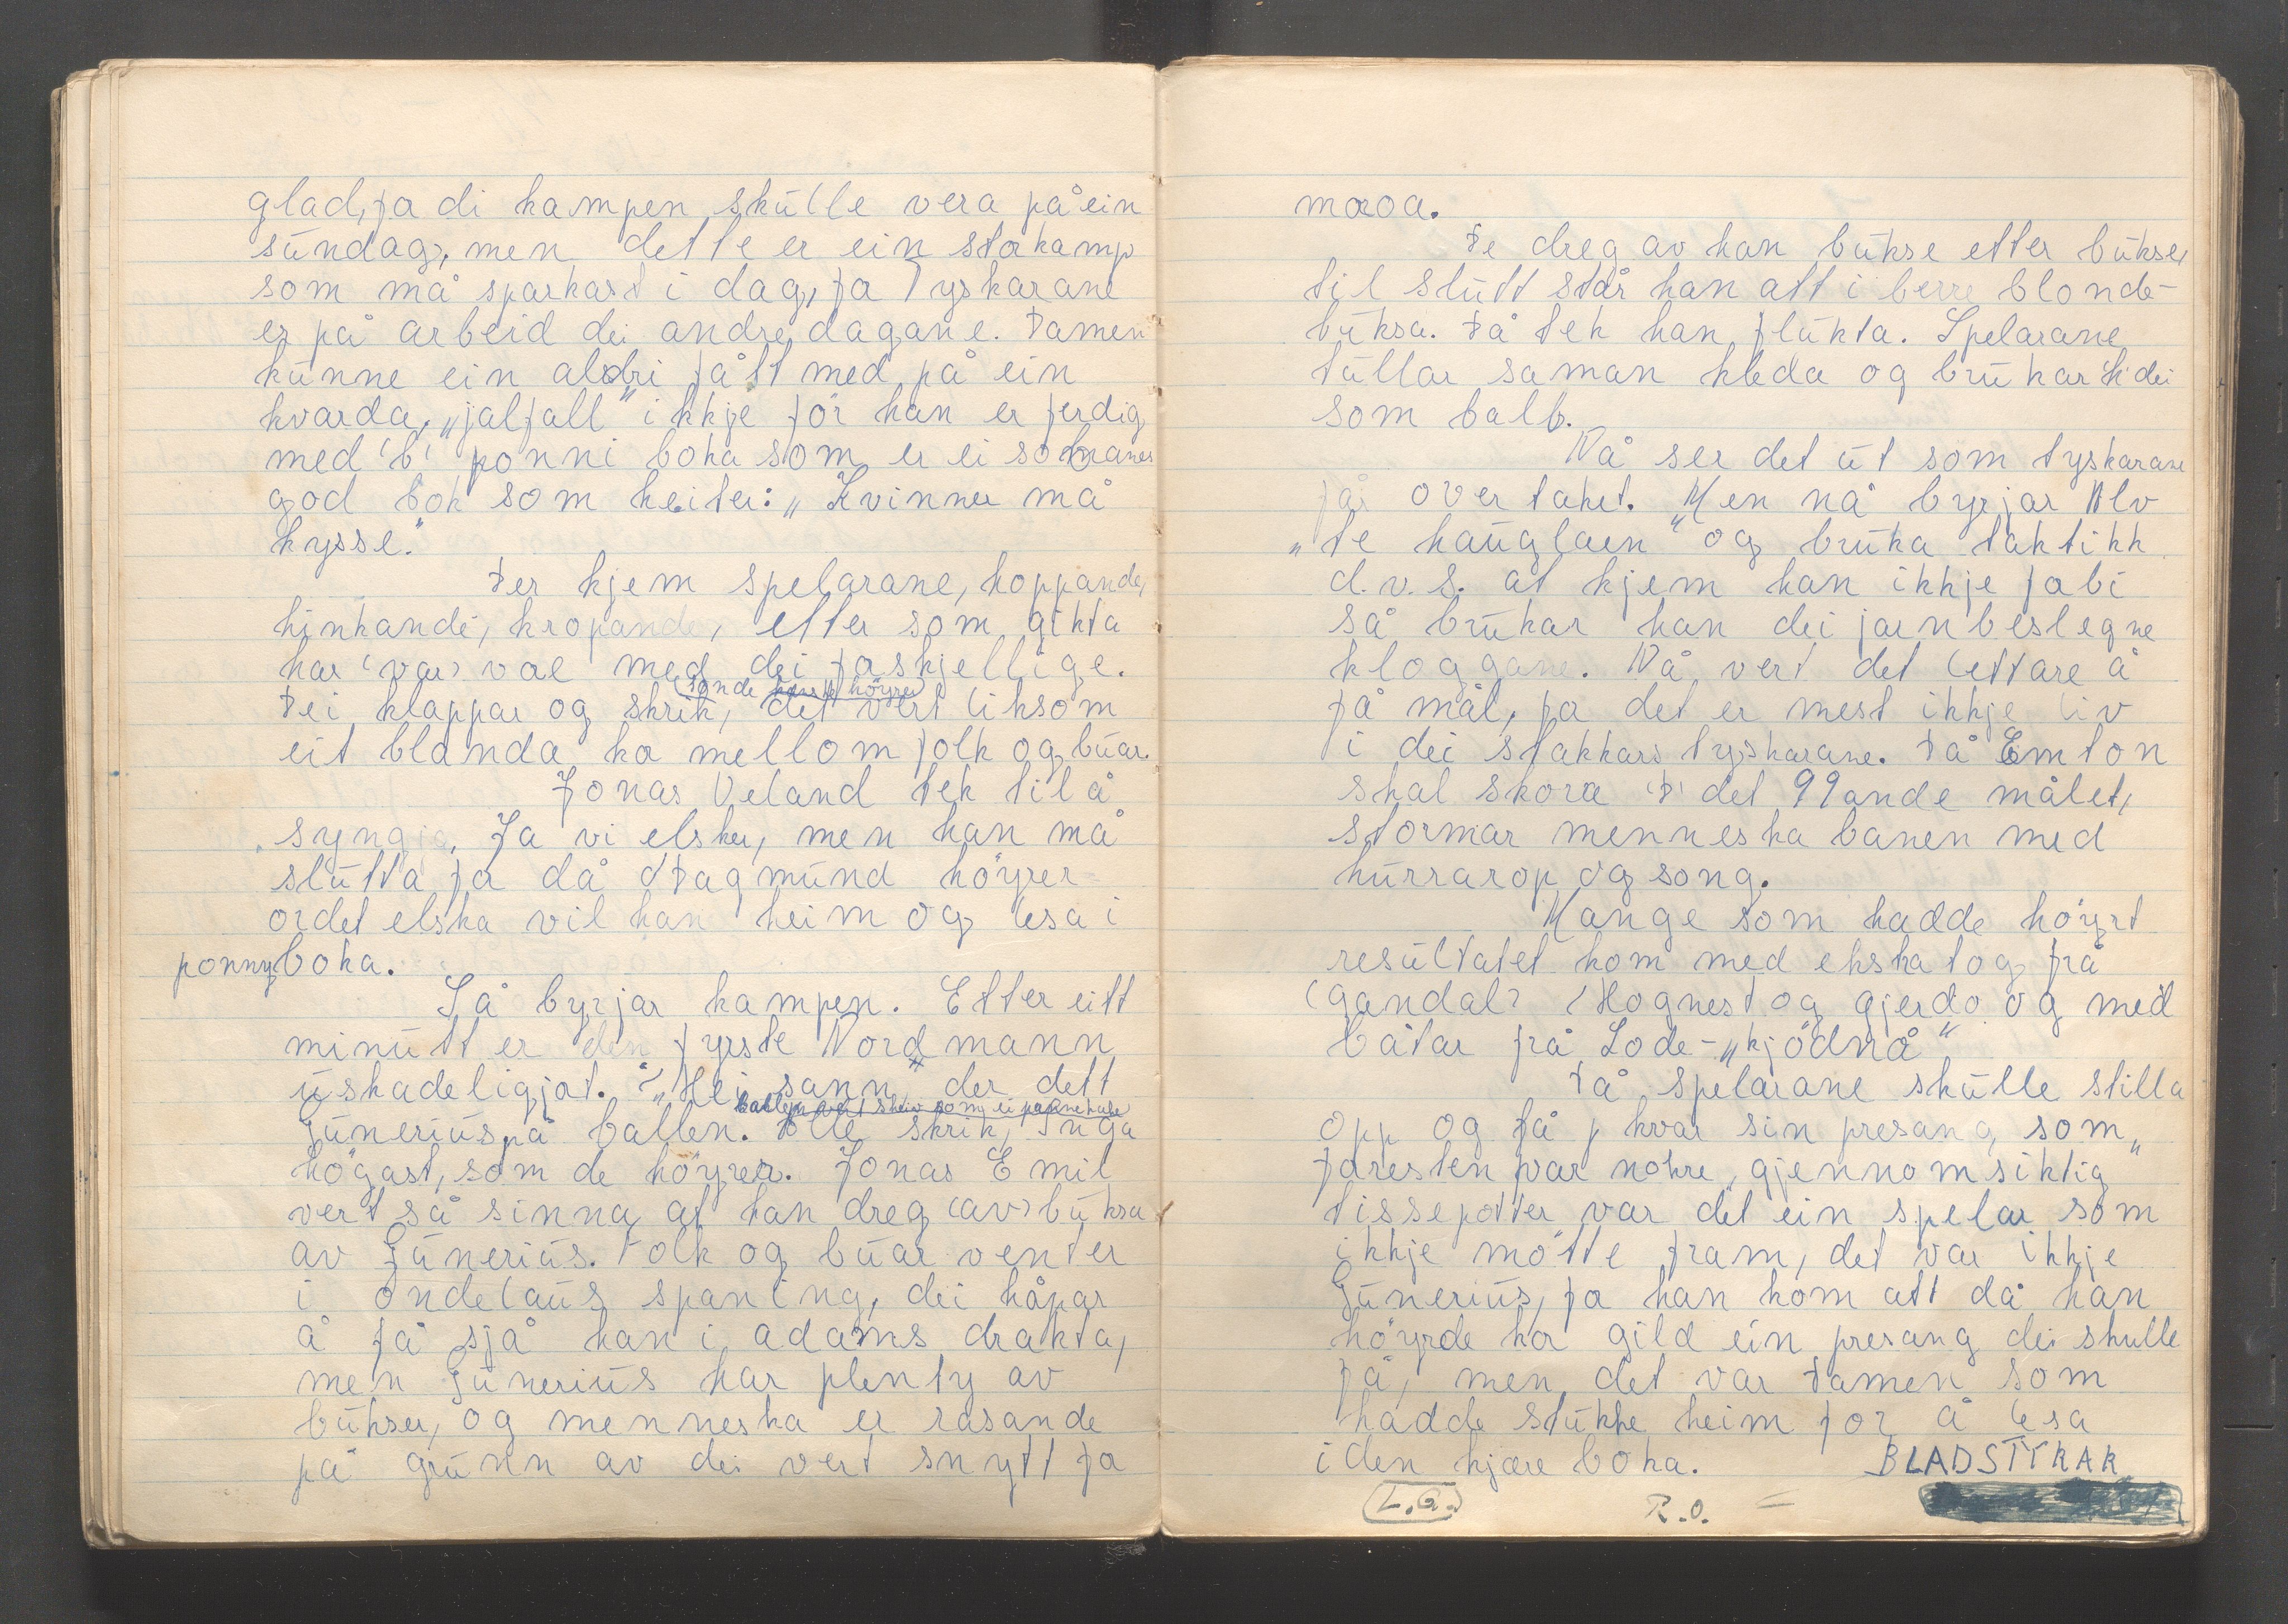 glad, fa di kampen skulle vera på ein
sundag, men dette er ein storkamp
som må sparkast i dag, fa Tyskarane
er på arbeid dei andre dagane. Damen
kunne ein aldri fått med på ein
kvarda, „jalfall" ikkje för han er ferdig
med 'b' ponni boka som er ei so
god bok som heiter: „Kvinner må
kysse."
Der kjem spelarane, hoppande,
hinkande, kropande, etter som gikta
har (var) vore med dei forskjellige.
(Sande høyrer)
Dei klappar og skrik, det vert liksom
eit blanda kor mellom folk og buar.
Jonas Veland tek til å
syngja, Ja vi elsker, men han må
slutta for då Dagmund höyrer
ordet elska vil han heim og lesa i
ponnyboka.
Så byrjar kampen. Etter eitt
minutt er den fyrste Nordmann
uskadeligjort. „Hei sann" der dett
ballen vert skeiv som ei pannekake
Gunerius på ballen. Olle skrik, Inga
högast, som de höyrer. Jonas Emil
vert så sinna at han dreg (av) buksa
av Gunerius. Folk og buar venter
i åndelaus spaning, dei håpar
å få sjå han i adams drakta,
men Gunerius har plenty av
bukser, og menneska er rasande
på grunn av dei vert snytt fo
moroa.
De dreg av han bukse etter bukse,
til slutt står han att i berre blonde-
buksa. Då tek han flukta. Spelarane
tullar saman kleda og brukar dei
som ball.
Nå ser det ut som tyskarane
får overtaket. Men nå byrjar Alv
„te hauglaen" og bruka taktikk
d.v.s. at kjem han ikkje fobi
så brukar han dei jarnbeslegne
kloggane. Nå vert det lettare å
få mål, fo det er mest ikkje liv
i dei stakkars tyskarane. Då Emton
skal skora 'D' det 99ande målet,
stormar menneska banen med
hurrarop og song.
Mange som hadde höyrt
resultatet kom med ekstratog frå
(gandal) (Hognest og gjerdo og med
båtar frå Lode-„kjödnå"
Då spelarane skulle stilla
opp og få kvar sin presang som
foresten var nokre „gjennomsiktig"
tissepotter var det ein spelar som
ikkje mötte fram, det var ikkje
Gunerius, fo han kom att då han
höyrde kor gild ein presang dei skulle
få, men det var Damen som
hadde stukke heim for å lesa
i den kjære boka. BLADSTYRAR
L.G. R.O.